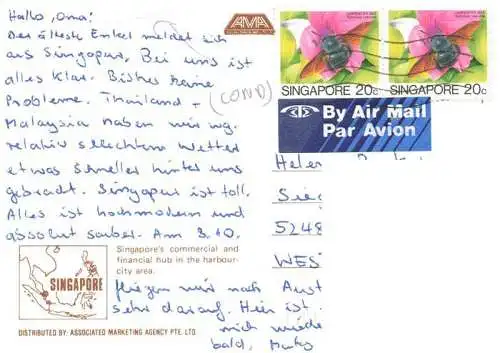 Hallo, Oma!
Der älteste Enkel meldet sich
aus Singapur. Bei uns ist
alles klar. Bisher keine
Probleme. Thailand -
(COND)
Malaysia haben wir wg.
relativ schlechtem Wetter
etwas schneller hinter uns
gebracht. Singapur ist toll.
Alles ist hochmodern und
absolut sauber. Am 8.10.
fliegen wir nach Aust
sehr darauf. Hier ist
mich wiede
bald,
AMA
SINGAPORE 20c
SINGAPORE 20c
By Air Mail
Par Avion
Helen
Sie
5248
WES
Singapore's commercial and
financial hub in the harbour-
city area.
SINGAPORE
DISTRIBUTED BY: ASSOCIATED MARKETING AGENCY PTE. LTD.